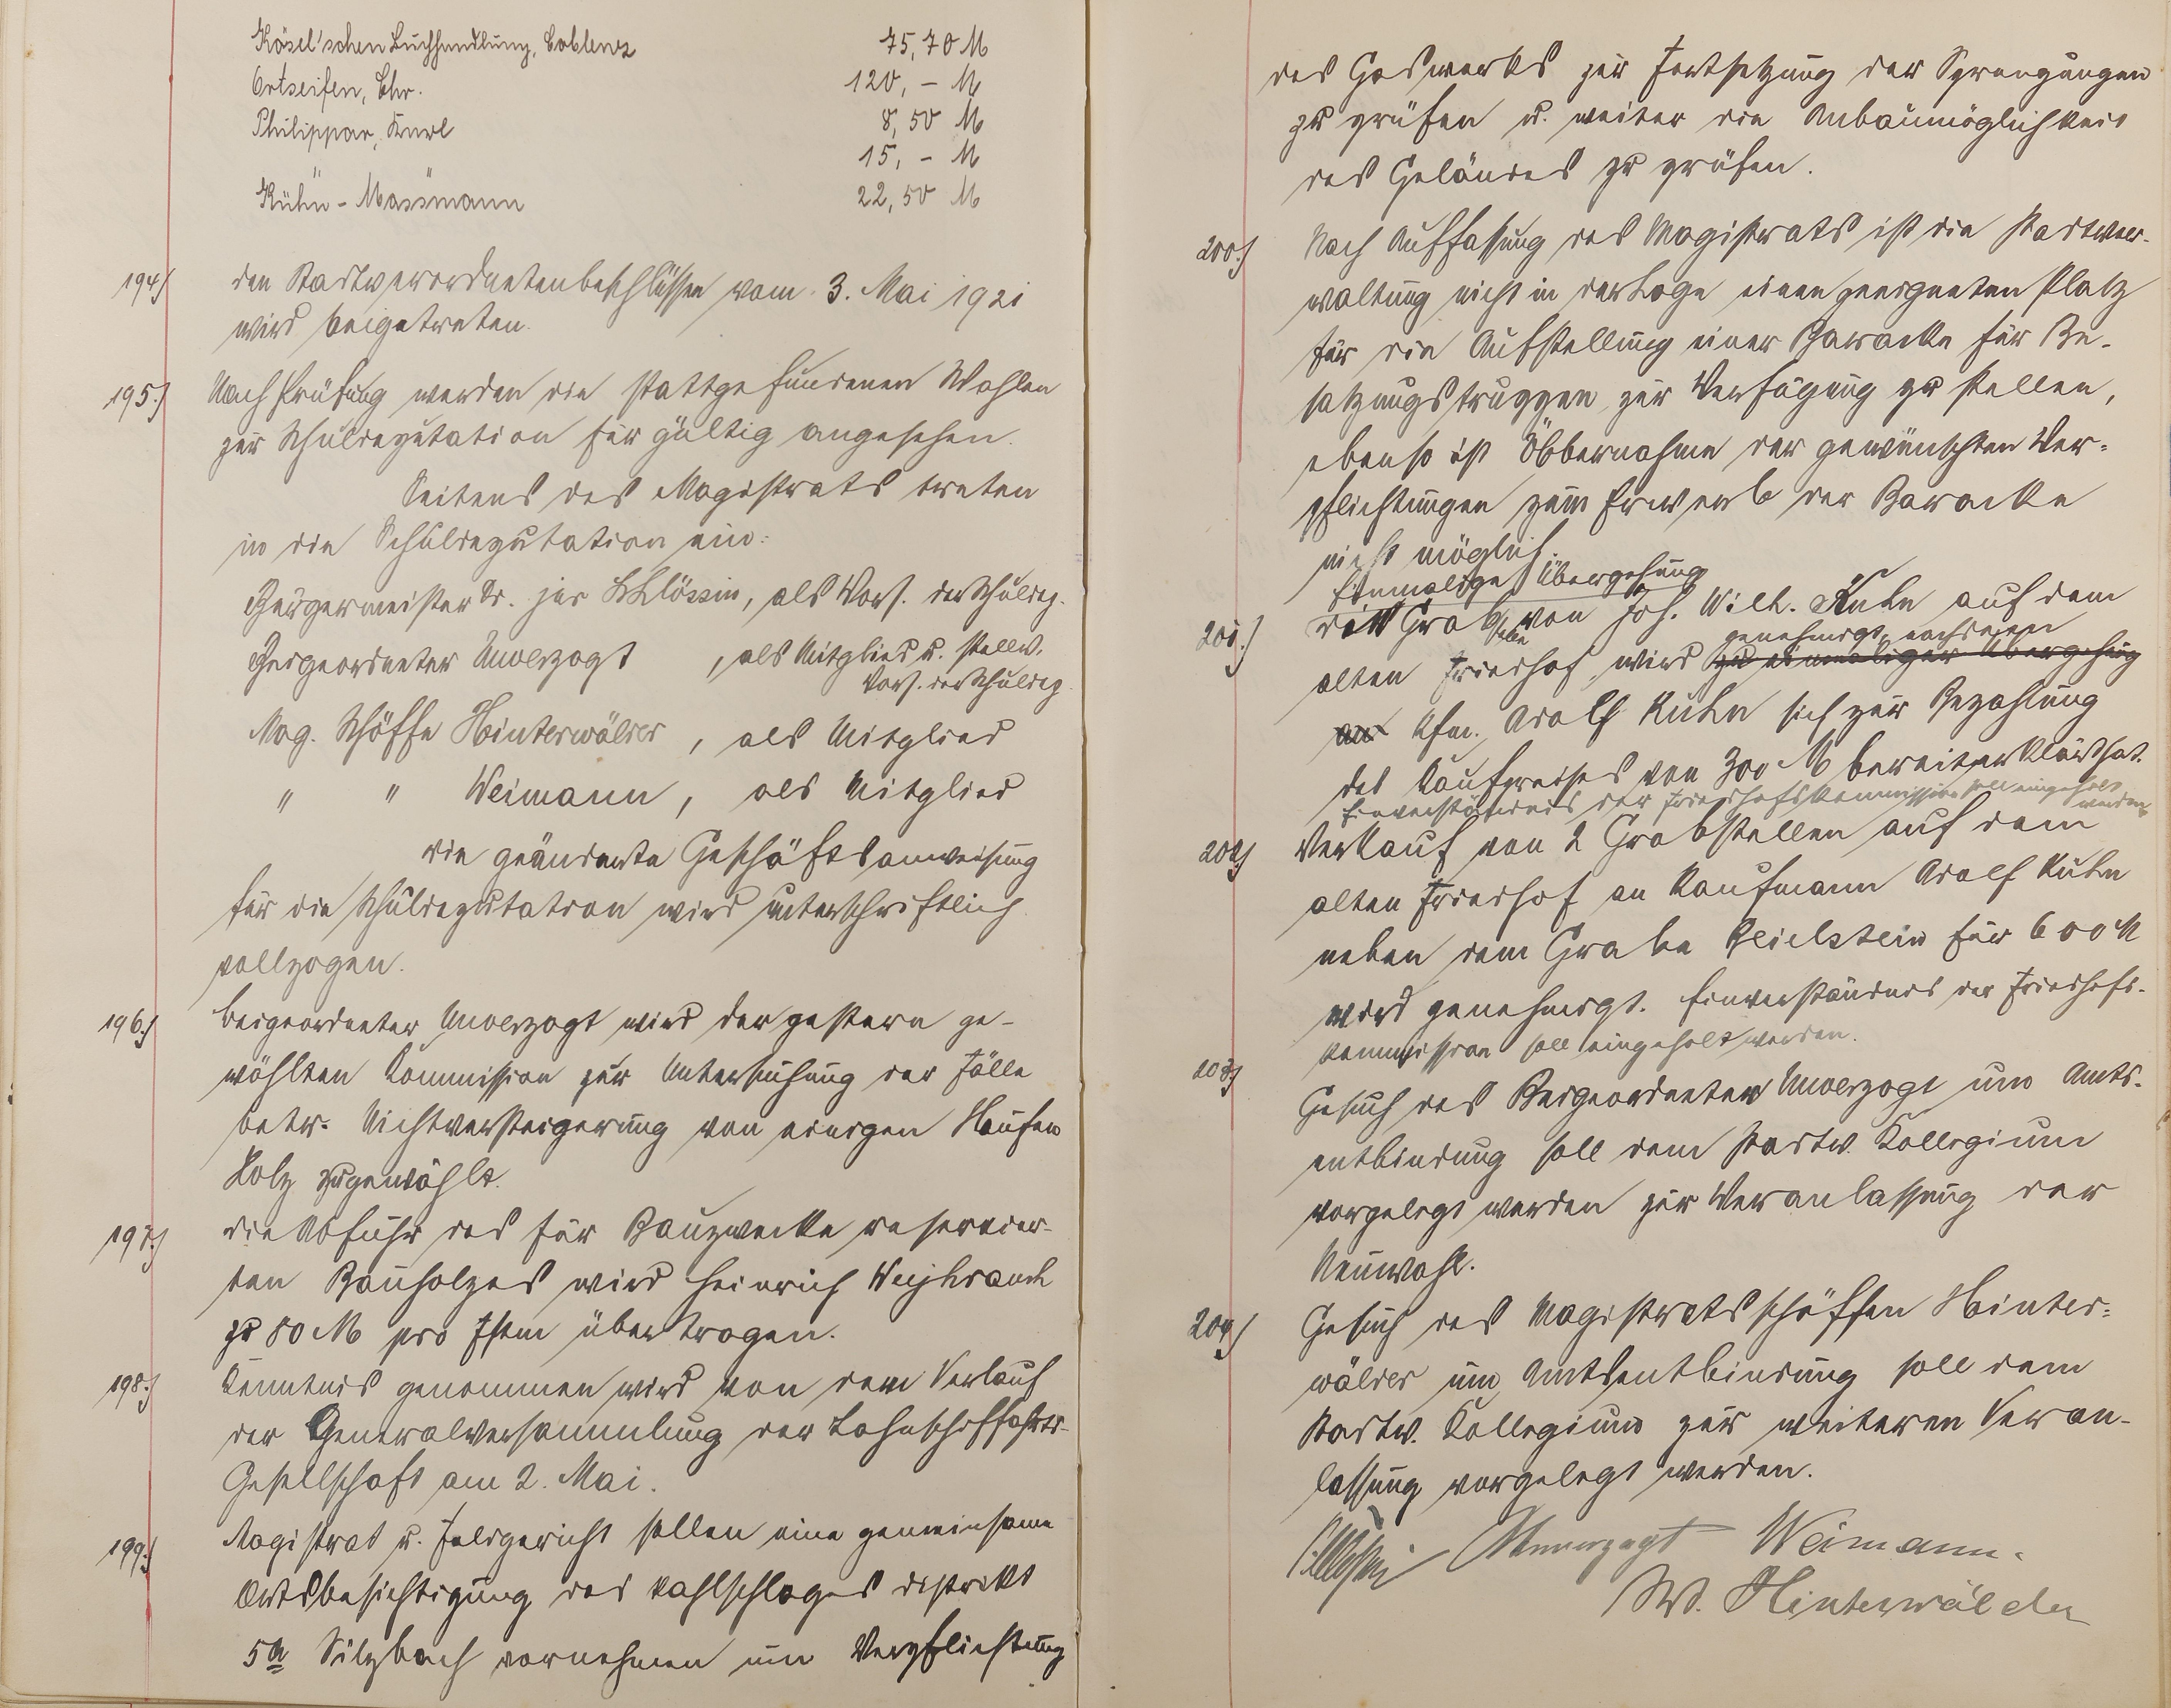 Kösel'schen Buchhandlung, Coblenz 75,70 M
Ortseifen, Chr. 120,- M
Philippar, Karl 8,50 M
" " 15,- M
Kühn - Massmann 22,50 M
194) den Stadtverordnetenbeschlüssen vom 3. Mai 1921
wird beigetreten.
195.) Nach Prüfung werden die stattgefundenen Wahlen
zur Schuldeputation für gültig angesehen.
Seitens des Magistrats treten
in die Schuldeputation ein:
Bürgermeister Dr. jur Schlössin, als Vors. der Schuldep.
Beigeordneter Unverzagt, als Mitglied u. stellv.
Vors. der Schuldep.
Mag. Schöffe Hinterwälder, als Mitglied
" " Weimann, als Mitglied
die geänderte Geschäftsanweisung
für die Schuldeputation wird unterschriftlich
vollzogen.
196.) Beigeordneter Unverzagt wird der gestern ge-
wählten Kommission zur Untersuchung der Fälle
betr. Nichtversteigerung von einigen Haufen
Holz zugewählt.
197.) die Abfuhr des für Bauzwecke reservier-
ten Bauholzes wird Heinrich Weyhrauch
zu 80 M pro Fstm übertragen.
198.) Kenntnis genommen wird von dem Verlauf
der Generalversammlung der Lahnschiffahrts-
Gesellschaft am 2. Mai.
199.) Magistrat u. Feldgericht sollen eine gemeinsame
Ortsbesichtigung des Kahlschlages distrikt
5a Silzbach vornehmen um Verpflichtung
des Gaswerks zur Fortsetzung der Sprengungen
zu prüfen u. weiter die Anbaumöglichkeit
des Geländes zu prüfen.
200.) Nach Auffassung des Magistrats ist die Stadtver-
waltung nicht in der Lage einen geeigneten Platz
für die Aufstellung einer Baracke für Be-
satzungstruppen zur Verfügung zu stellen,
ebenso ist Übbernahme der gewünschten Ver-
pflichtungen zum Erwerb der Baracke
nicht möglich.
Einmalige Übergehung
201.) Grab von Joh. Wilh. Kuhn auf dem
genehmigt, nachdem
alten Friedhof wird zu einmaliger Übergehung
an Kfm. Adolf Kuhn sich zur Bezahlung
des Kaufpreises von 300 M bereiterklärt hat.
Einverständnis der Friedhofskommission soll eingeholt
werden.
202) Verkauf von 2 Grabstellen auf dem
alten Friedhof an Kaufmann Adolf Kuhn
neben dem Grabe Beielstein für 600 M
wird genehmigt. Einverständnis der Friedhofs-
kommission soll eingeholt werden.
203) Gesuch des Beigeordneten Unverzagt um Amts-
entbindung soll dem Stadtv. Kollegium
vorgelegt werden zur Veranlassung der
Neuwahl.
204) Gesuch des Magistratsschöffen Hinter-
wälder um Amtsentbindung soll dem
Stadtv. Kollegium zur weiteren Veran-
lassung vorgelegt werden.
Schlössin Unverzagt Weimann.
W. Hinterwälder